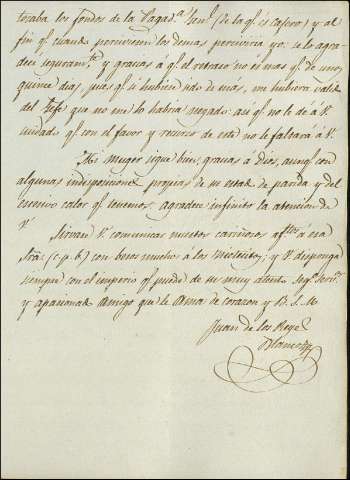 toraba los fondos de la Pagad.ª Gen.l (de la q.l es casero) y al
fin q.l cuando perciviesen los demas perciviria yo: le lo agra-
deci seguram.te y gracias á q.l el retraso no es mas q.l de unos
quince dias, pues q.l si hubiese sido de más, me hubiera valido
del Gefe que no me lo habria negado: asi q.l no le dé á V.
cuidado q.l con el favor y recurso de este no le faltará á V.
Mi muger sigue bien, gracias á Dios, aunq.l con
algunas indisposiciones propias de su estado de parida y del
excesivo calor q.l tenemos, agradece infinito la atencion de
V.
Sirvase V. comunicar nuestros cariñosos af.tos á esa
Sra. (c. p. b.) con besos mucho á los nietecitos; y V. disponga
siempre con el imperio q.l puede de su muy atento seg.º serv.or
y apasionado Amigo que le Ama de corazon y B. S. M.
Juan de los Reyes
Blanco